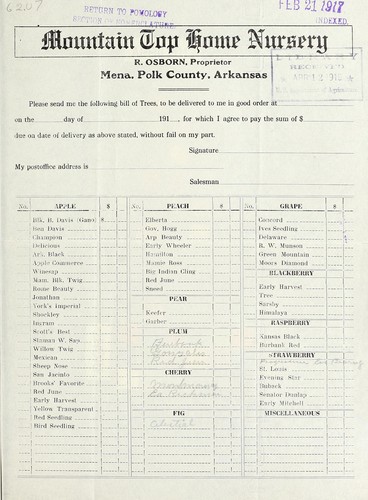 6207
RETURN TO POMOLOGY
SECTION OF NOMENCLATURE
FEB 21 1917
INDEXED
Mountain Top Home Nursery
R. OSBORN, Proprietor
Mena, Polk County, Arkansas
RECEIVED
Please send me the following bill of Trees, to be delivered to me in good order at
on the day of 191 , for which I agree to pay the sum of $
due on date of delivery as above stated, without fail on my part.
Signature
My postoffice address is
Salesman
No. APPLE $
Blk. B. Davis (Gano) $
Ben Davis
Champion
Delicious
Ark. Black
Apple Commerce
Winesap
Mam. Blk. Twig
Rome Beauty
Jonathan
York's Imperial
Shockley
Ingram
Scott's Red
Staman W. Sap
Willow Twig
Mexican
Sheep Nose
San Jacinto
Brooks' Favorite
Red June
Early Harvest
Yellow Transparent
Red Seedling
Bird Seedling
No. PEACH $
Elberta
Gov. Hogg
Arp Beauty
Early Wheeler
Hamilton
Mamie Ross
Big Indian Cling
Red June
Sneed
PEAR
Keefer
Garber
PLUM
Burbank
Gonzales
Red June
CHERRY
Montmorency
FIG
Celestial
No. GRAPE $
Concord
Ives Seedling
Delaware
R. W. Munson
Green Mountain
Moors Diamond
BLACKBERRY
Early Harvest
Tree
Sarsby
Himalaya
RASPBERRY
Kansas Black
Burbank Red
STRAWBERRY
St. Louis
Evening Star
Buback
Senator Dunlap
Early Mitchell
MISCELLANEOUS